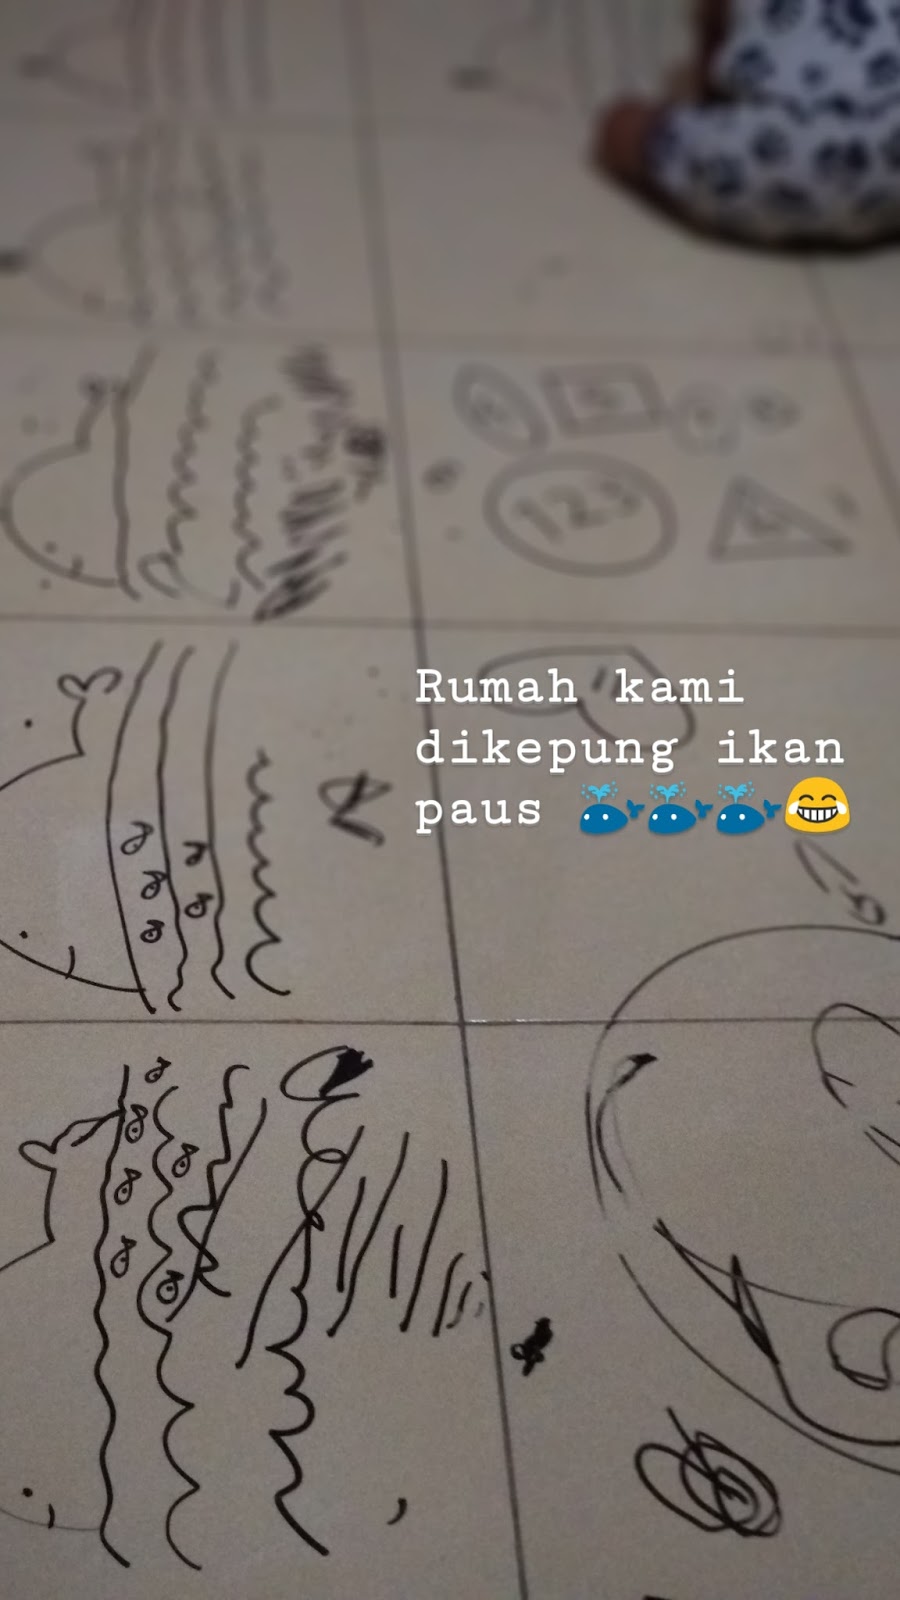 123
Rumah kami
dikepung ikan
paus 🐳🐳🐳😂